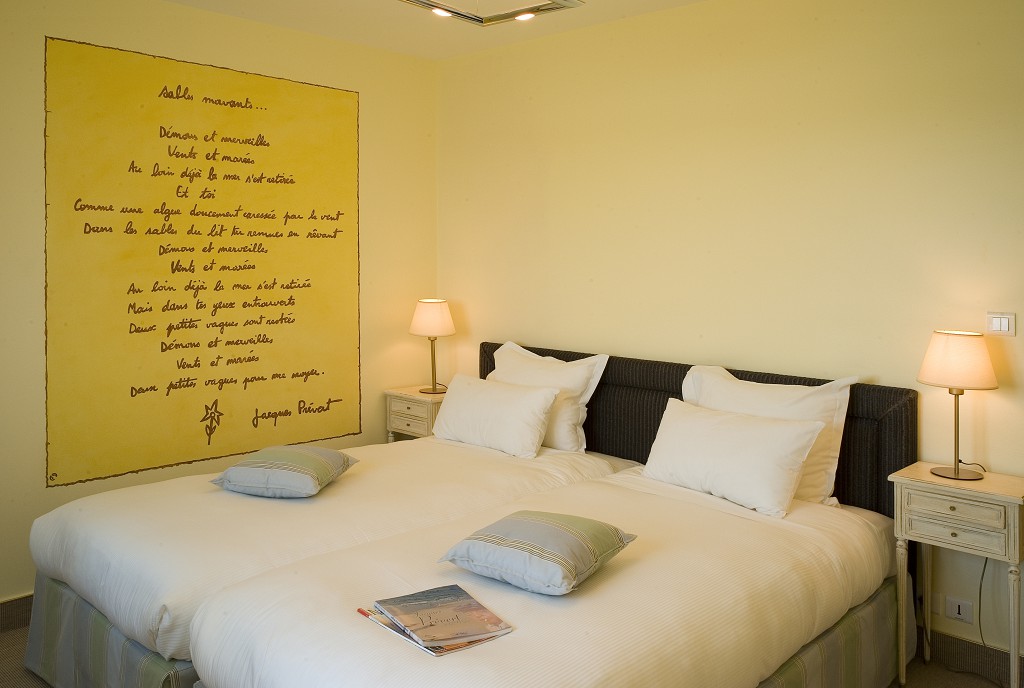 Sables mouvants...
Démons et merveilles
Vents et marées
Au loin déjà la mer s'est retirée
Et toi
Comme une algue doucement caressée par le vent
Dans les sables du lit tu remues en rêvant
Démons et merveilles
Vents et marées
Au loin déjà la mer s'est retirée
Mais dans tes yeux entrouverts
Deux petites vagues sont restées
Démons et merveilles
Vents et marées
Deux petites vagues pour me noyer.
Jacques Prévert
Prévert